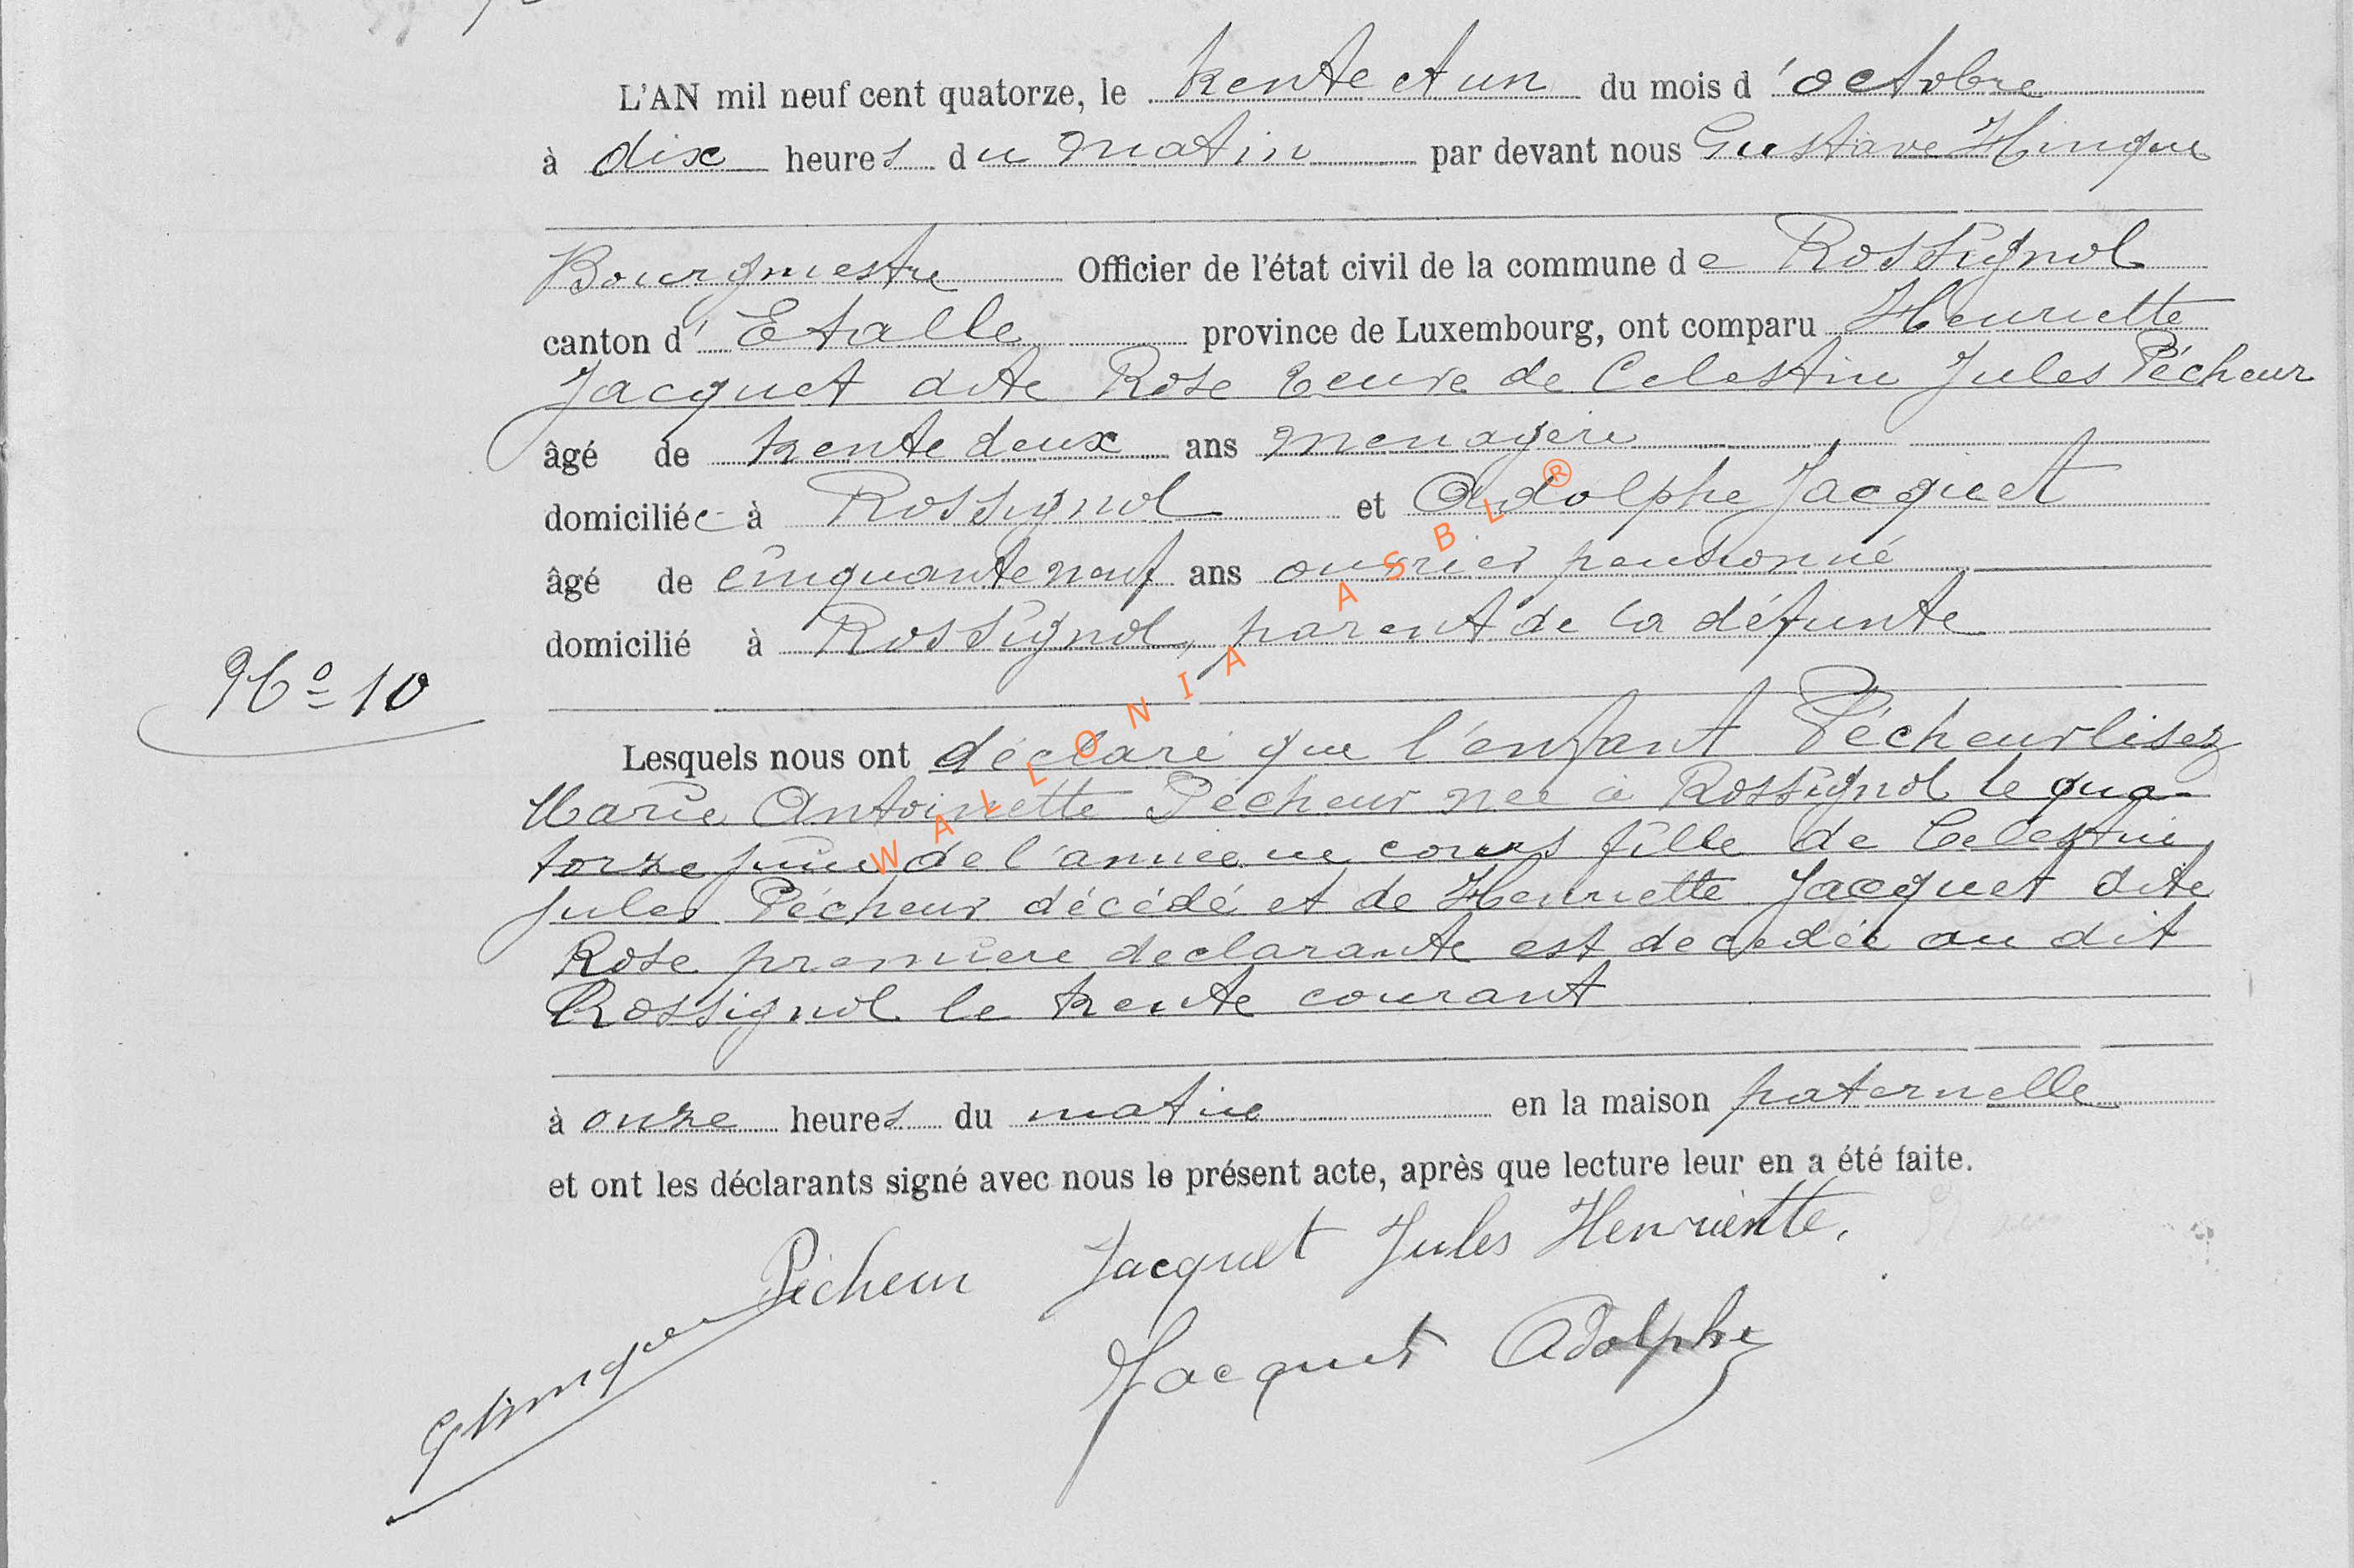 L'AN mil neuf cent quatorze, le trente et un du mois d'octobre
à dix heures du matin par devant nous Gustave Hinque
Bourgmestre Officier de l'état civil de la commune de Rossignol
canton d'Etalle province de Luxembourg, ont comparu Henriette
Jacquet dite Rose veuve de Celestin Jules Pécheur
âgé de trente deux ans menagère
domiciliée à Rossignol et Adolphe Jacquet
âgé de cinquante neuf ans ouvrier pensionné
domicilié à Rossignol, parent de la défunte
No 10
Lesquels nous ont déclaré que l'enfant Pécheur lisez
Marie Antoinette Pécheur née à Rossignol le qua-
torze juin de l'année en cours fille de Celestin
Jules Pécheur décédé et de Henriette Jacquet dite
Rose première declarante est decedée au dit
Rossignol le trente courant
à onze heures du matin en la maison paternelle
et ont les déclarants signé avec nous le présent acte, après que lecture leur en a été faite.
Pécheur Jacquet Jules Henriette.
GHinque
Jacquet Adolphe
WALLONIA ASBL ®